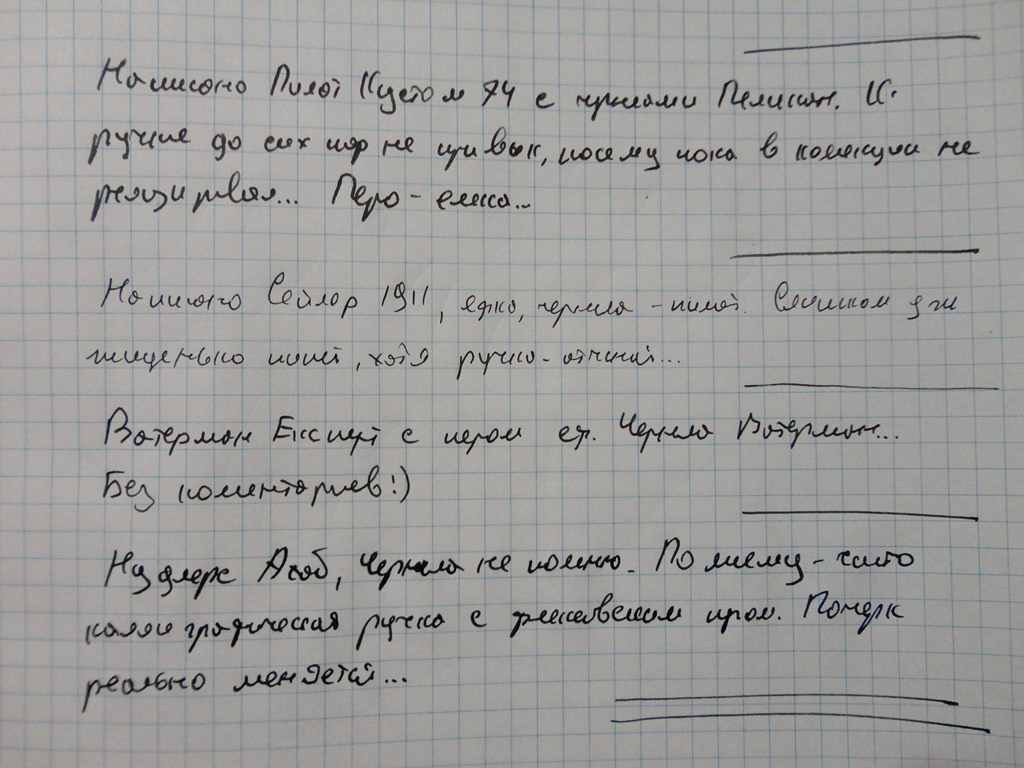 Написано Пилот Кустом 74 с чернилами Пеликан. К
ручке до сих пор не привык, посему пока в колекции не
Перо - емка...
Написано Сейлор 1911, чернила - пилот. Слишком уж
пишет, хотя ручка - отличная...
Ватерман Експерт с пером Чернила Ватерман...
Без коментариев!)
Нудлерс Ахаб, Чернила не помню. По моему - чисто
калиграфическая ручка с пером. Почерк
реально меняется...